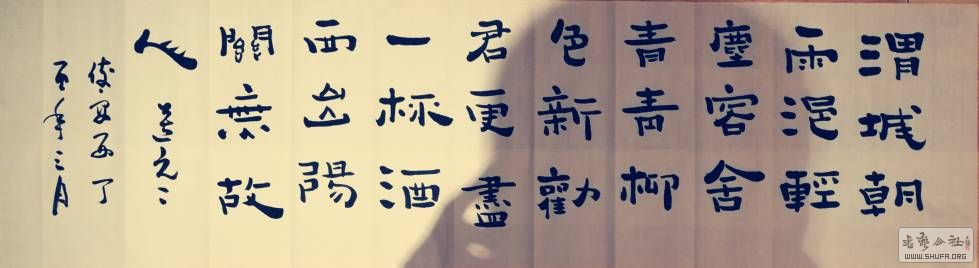 渭城朝
雨浥輕
塵客舍
青青柳
色新勸
君更盡
一杯酒
西出陽
關無故
人 送元二
使安西 丁
酉年三月
书艺公社
WWW.SHUFA.ORG